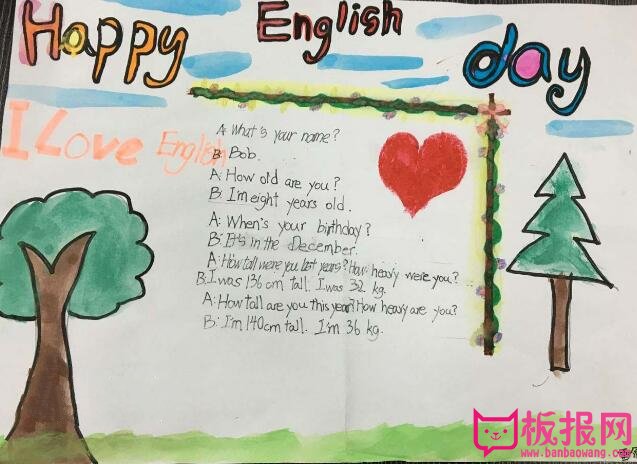 Happy English day
I Love English
A: What's your name?
B: Bob.
A: How old are you?
B: I'm eight years old.
A: When's your birthday?
B: It's in the December.
A: How tall were you last years? How heavy were you?
B: I was 136 cm tall. I was 32 kg.
A: How tall are you this year? How heavy are you?
B: I'm 140cm tall. I'm 36 kg.
板报网
www.banbaowang.com